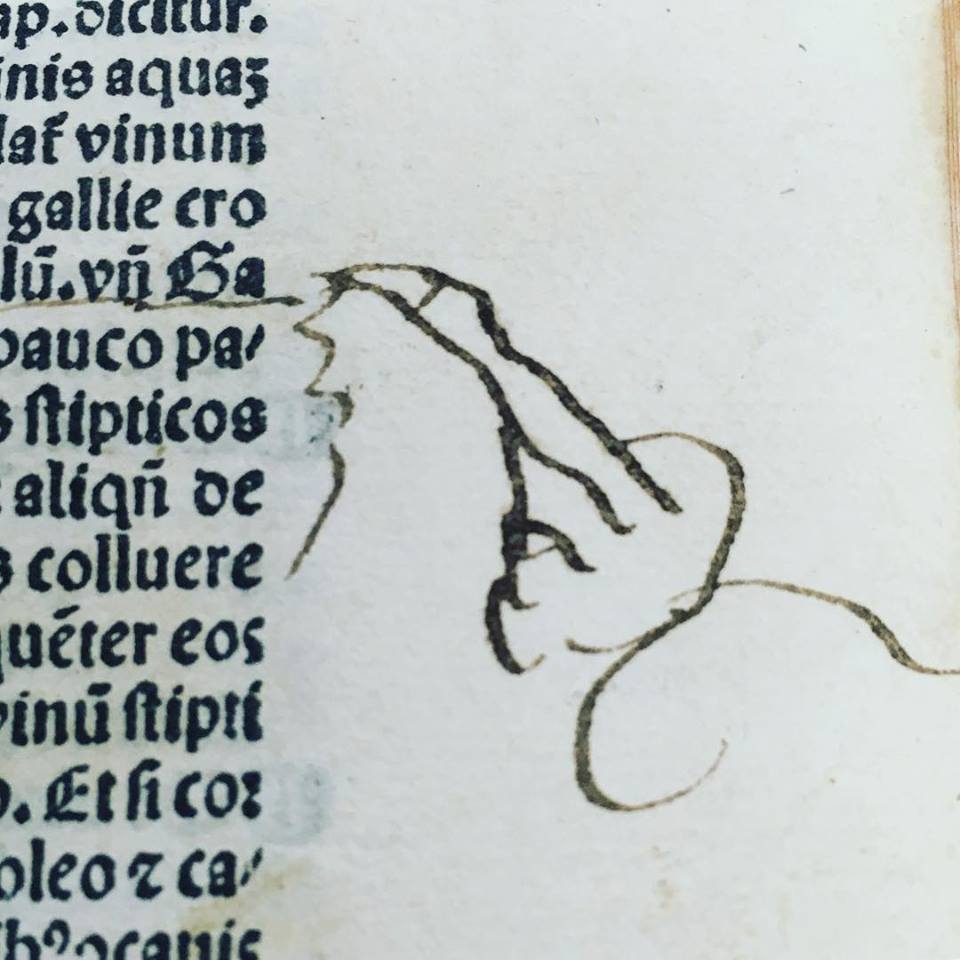 ap. dicitur.
inis aquaꝫ
lat̄ vinum
gallie cro
lū. vij̄ Ga
pauco pa/
s ſtipticos
aliqñ de
s colluere
quēter eos
vinū ſtipti
o. Et ſi coꝛ
oleo ⁊ ca/